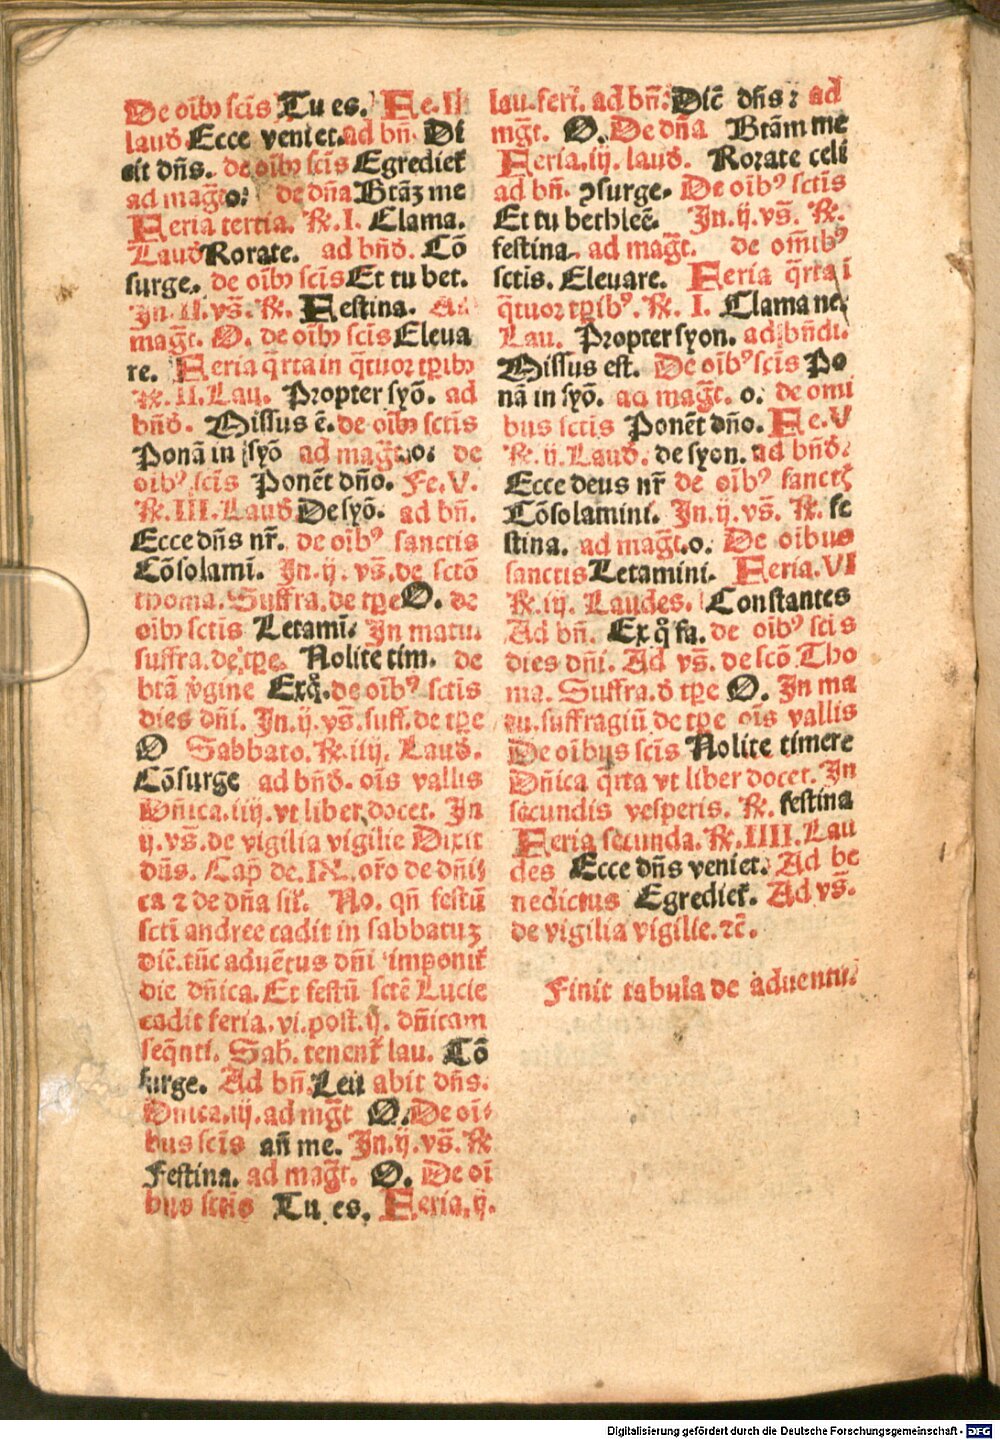 De oībꝰ scīs Tu es. Fe. II
laud̄. Ecce veniet. ad bn̄. Di
cit dn̄s. de oībꝰ scīs Egrediet᷑
ad mag̃t. o. de dn̄a Btāȝ me
Feria tertia. ℞. I. Clama.
Laud̄ Rorate. ad bn̄d̄. Cō
surge. de oībꝰ scīs Et tu bet.
In. II. vs̄. ℞. Festina. Ad
mag̃t. O. de oībꝰ scīs Eleua
re. Feria q̄rta in q̄tuor tꝑibꝰ
℞. II. Lau. Propter syō. ad
bn̄d̄. Missus ē. de oībꝰ sctīs
Ponā in syō ad mag̃t. o. de
oībꝰ scīs Ponēt dn̄o. Fe. V.
℞. III. Laud̄ De syō. ad bn̄.
Ecce dn̄s nr̄. de oībꝰ sanctis
Cōsolamī. In. ij. vs̄. de sctō
thoma. Suffra. de tꝑe O. de
oībꝰ sctīs Letamī. In matu.
suffra. de tꝑe. Nolite tim. de
btā ꝟgine Exq̊. de oībꝰ sctīs
dies dn̄i. In. ij. vs̄. suff. de tꝑe
O Sabbato. ℞. iiij. Laud̄.
Cōsurge ad bn̄d̄. oīs vallis
Dn̄ica. iiij. vt liber docet. In
ij. vs̄. de vigilia vigilie Dixit
dn̄s. Cap̄ de. IX. orō de dn̄i
ca ⁊ de dn̄a sil̄. No. qn̄ festū
sctī andree cadit in sabbatuȝ
diē. tūc aduētus dn̄i imponit᷑
die dn̄ica. Et festū sctē Lucie
cadit feria. vi. post. ij. dn̄icam
seq̄nti. Sab̄. tenent᷑ lau. Cō
surge. Ad bn̄. Leu abit dn̄s.
Dnica. iij. ad mg̃t O. De oī
bus scīs an̄ me. In. ij. vs̄. ℞
Festina. ad mag̃t. O. De oī
bus sctīs Tu es. Feria. ij.
lau. feri. ad bn̄. Dic̄ dn̄s: ad
mg̃t. O. De dn̄a Btām me
Feria. iij. laud̄. Rorate celi
ad bn̄. ꝯsurge. De oībꝰ sctīs
Et tu bethleē. In. ij. vs̄. ℞.
festina. ad mag̃t. de om̄ibꝰ
sctīs. Eleuare. Feria q̄rta i
q̄tuor tꝑibꝰ. ℞. I. Clama ne
Lau. Propter syon. ad bn̄di.
Missus est. De oībꝰ scīs Po
nā in syō. ad mag̃t. o. de omi
bus sctīs Ponēt dn̄o. Fe. V
℞. ij. Laud̄. de syon. ad bn̄d̄.
Ecce deus nr̄ de oībꝰ sanctꝭ
Cōsolamini. In. ij. vs̄. ℞. fe
stina. ad mag̃t. o. De oibus
sanctis Letamini. Feria. VI
℞. iij. Laudes. Constantes
Ad bn̄. Ex q̊ fa. de oībꝰ scīs
dies dn̄i. Ad vs̄. de scō Tho
ma. Suffra. d̄ tꝑe O. In ma
tu. suffragiū de tꝑe oīs vallis
De oibus scīs Nolite timere
Dn̄ica q̄rta vt liber docet. In
secundis vesperis. ℞. festina
Feria secunda. ℞. IIII. Lau
des Ecce dn̄s veniet. Ad be
nedictus Egrediet᷑. Ad vs̄.
de vigilia vigilie. ⁊c̄.
Finit tabula de aduentu.
Digitalisierung gefördert durch die Deutsche Forschungsgemeinschaft - DFG